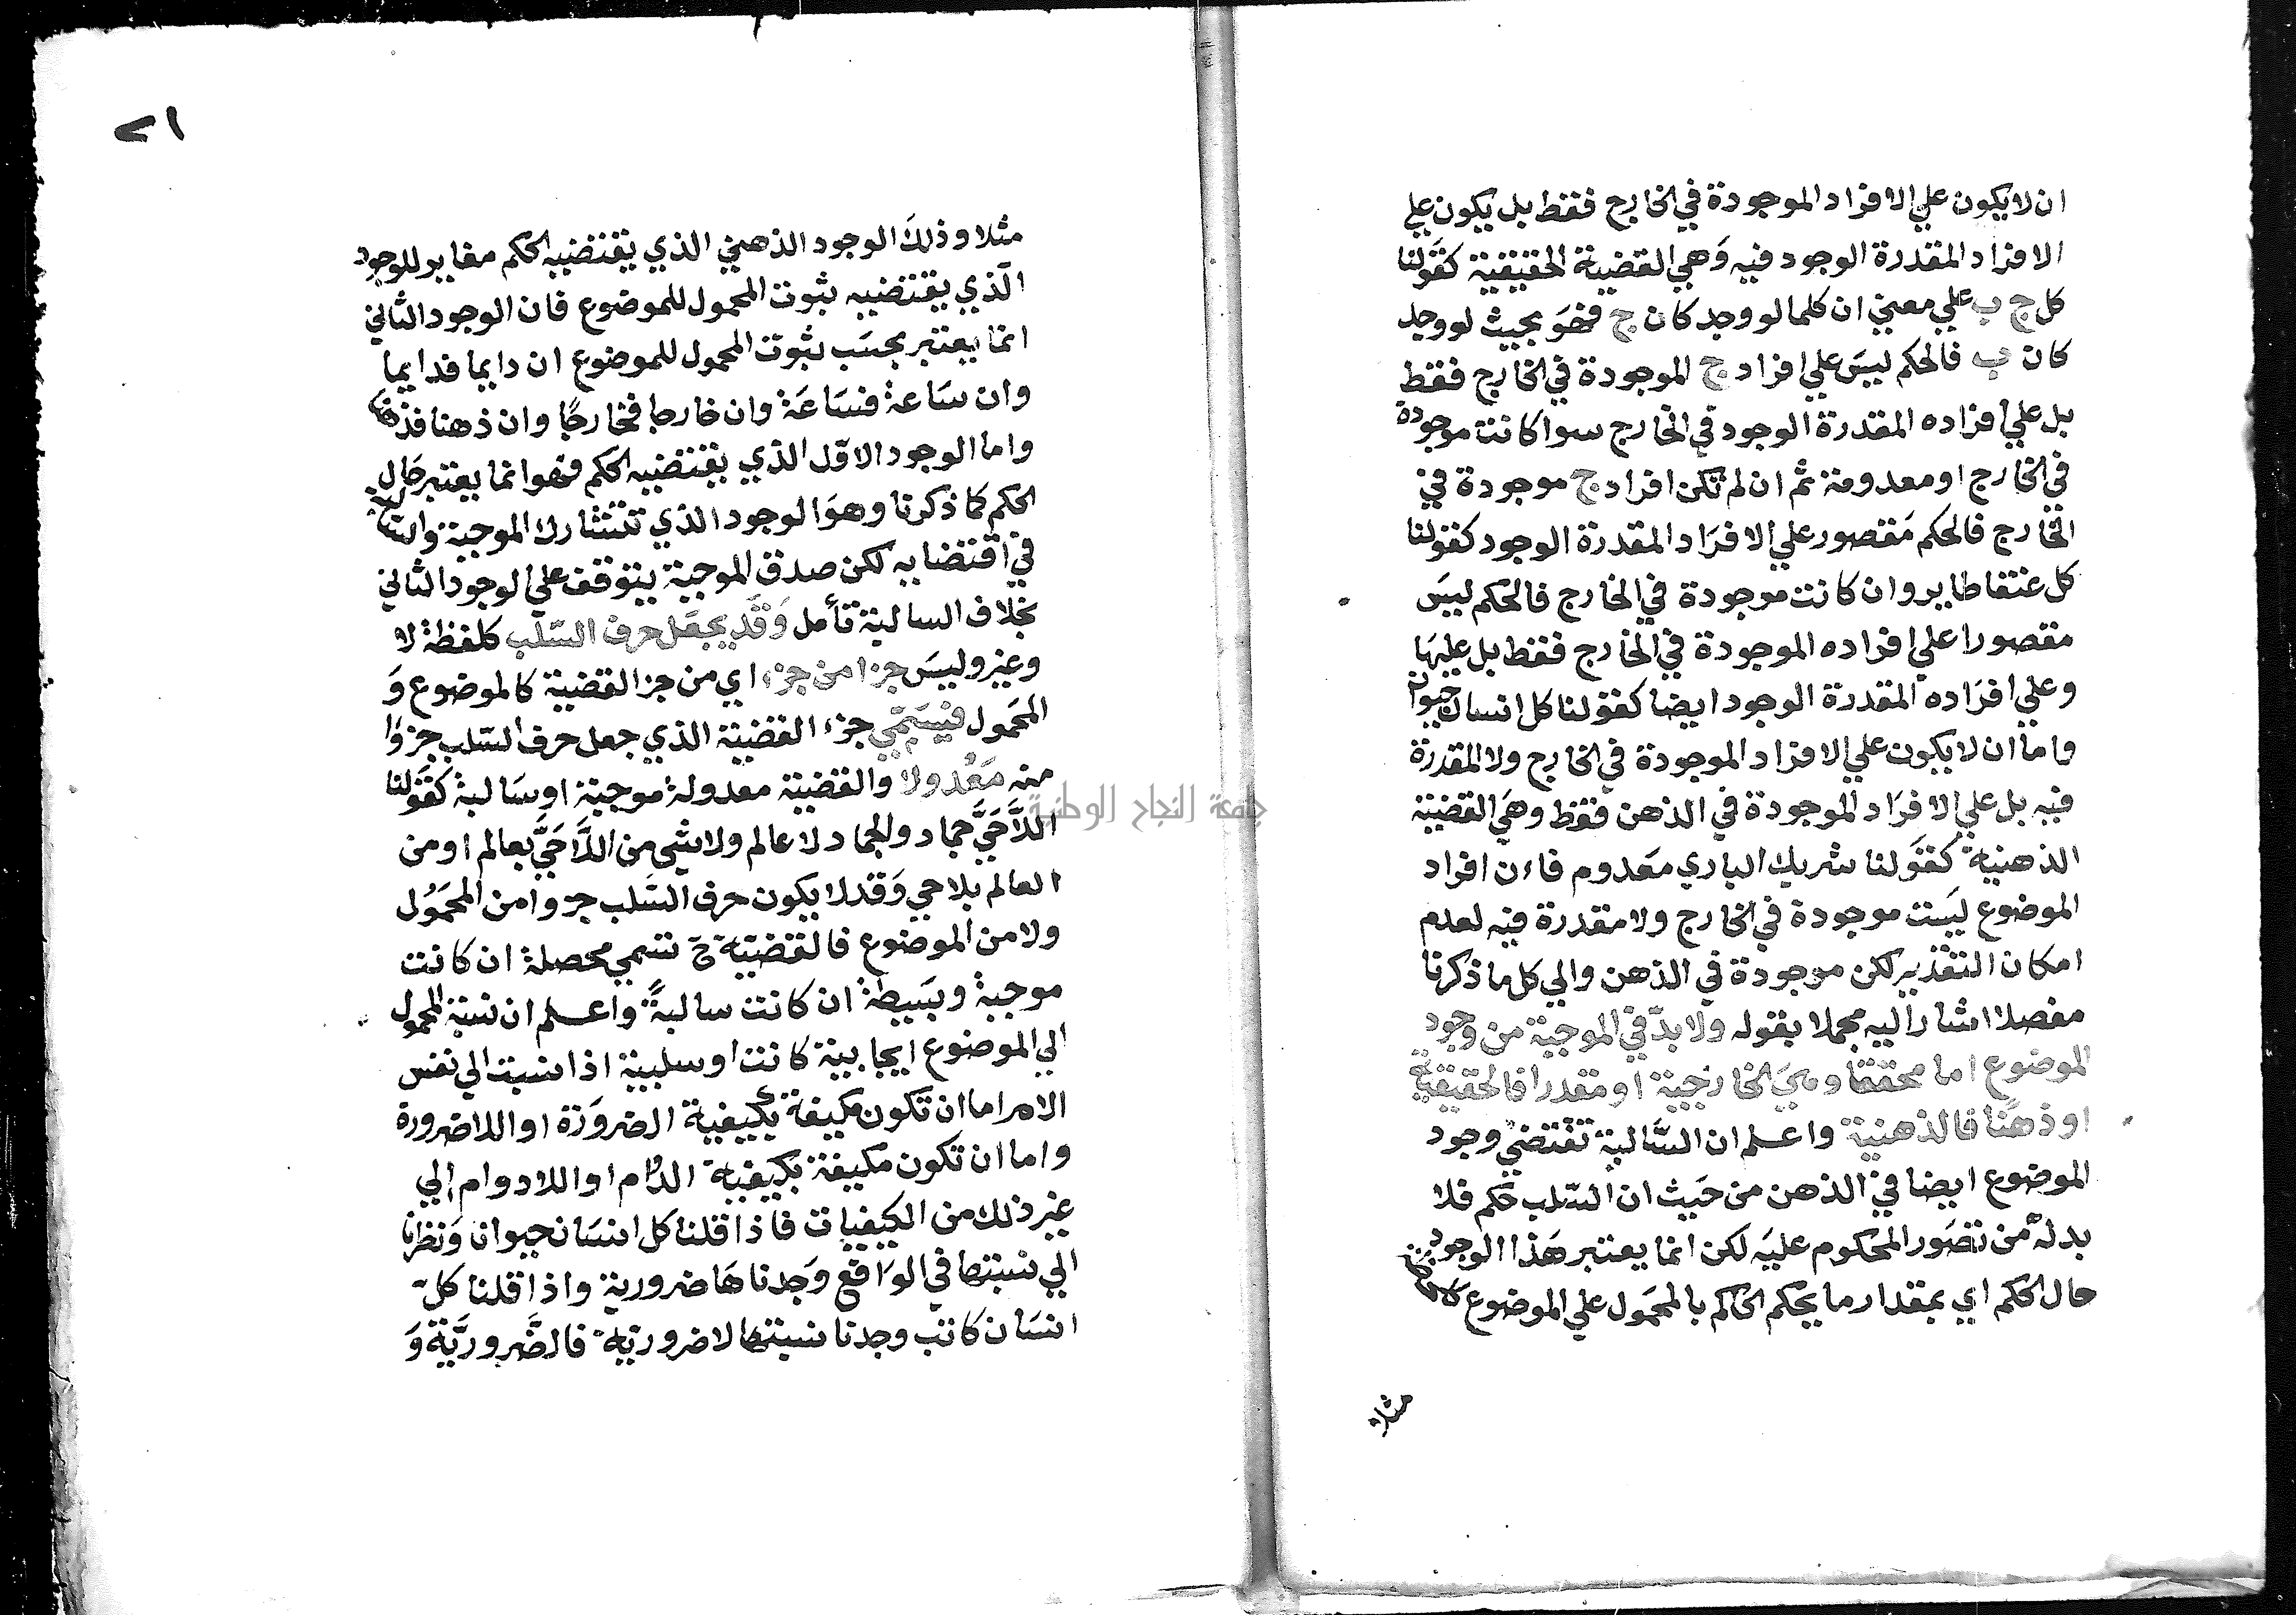 ان لا يكون علي الافراد الموجودة في الخارج فقط بل يكون علي
الافراد المقدرة الوجود فيه وَهي القضية الحقيقية كقَولنا
كل ج ب علي معني ان كلما لو وجد كان ج فهوَ بحيث لو وجد
كان ب فالحكم ليسَ علي افراد ج الموجودة في الخارج فقط
بل علي افراده المقدرة الوجود في الخارج سوا كانت موجودة
في الخارج او معدومة ثم ان لم تكن افراد ج موجودة في
الخارج فالحكم مَقصور علي الافرَاد المقدرة الوجود كقولنا
كل عنقا طاير وان كانت موجودة في الخارج فالحكم ليسَ
مقصورا علي افراده الموجودة في الخارج فقط بل عليهَا
وعلي افرَاده المقدرة الوجود ايضا كقولنا كل انسان حيوان
واما ان لا يكون علي الافراد الموجودة في الخارج ولا المقدرة
فيه بل علي الافرَاد الموجودة في الذهن فقط وهَي القضية
الذهنية كقَولنا شريك الباري معَدوم فاءن افراد
الموضوع ليسَت موجودة في الخارج ولا مقدرة فيه لعدم
امكان التقدير لكن موجودة في الذهن والي كل ما ذكرنا
مفصلا اشار اليه مجملا بقوله ولا بدّ في الموجبة من وجود
الموضوع اما محققا وهيَ الخارجية او مقدرا فالحقيقية
او ذهنا فالذهنية واعلم ان السَّالبة تقتضي وجود
الموضوع ايضا في الذهن من حَيث ان السّلب حكم فلا
بد لهُ من تصَور المحكوم عليَه لكن انما يعتبر هَذا الوجود
حال الحكم اي بمقدار ما يحكم الحاكم بالمحمَول علي الموضوع
مثلا
٢١
مثلا وذلكَ الوجود الذهني الذي يقتضيه الحكم مغاير للوجود
الّذي يقتضيه ثبوت المحمول للموضوع فان الوجود الثاني
انما يعتبر بحسَب ثبوت المحمول للموضوع ان دايما فدايما
وان سَاعة فسَاعَة وان خارجا فخارجًا وان ذهنا فذهنا
واما الوجود الاوّل الذي يقتضيه الحكم فهو انما يعتبر حَال
الحكم كما ذكرنا وهوَ الوجود الذي تتشارك الموجبة والسالبة
في اقتضايه لكن صدق الموجبة يتوقف علي الوجود الثاني
بخلاف السالبة تأمل وَقَد يجعَل حرف السّلب كلفظة لا
وغير وليسَ جزا من جزء اي من جز القضية كالموضوع وَ
المحَمول فيسَمّي جزء القضية الذي جعل حرف السّلب جزوًا
منه مَعْدولا والقضية معدولة موجبة او سَالبة كقَولنا
اللَّاحَيّ جماد والجماد لا عالم ولا شي من اللَّاحَيّ بعالم او من
العالم بلاحي وَقد لا يكون حرف السَّلب جزوا من المحمَوُل
ولا من الموضوع فالقضيّة ح تسَمي محصلة ان كانت
موجبةً وبسَيطةً ان كانت سالبةً واعلم ان نسبة المحمول
الي الموضوع ايجابية كانت او سلبية اذا نسبت الي نفس
الامر اما ان تكون مكيفة بكيفية الضروَرَة او اللاضرورة
واما ان تكون مكيفة بكيفية الدوام او اللادوام الي
غير ذلك من الكيفيات فاذا قلنا كل انسَان حيوان وَنظرنا
الي نسبتها في الوَاقع وَجدناهَا ضرورية واذا قلنا كلّ
انسَان كاتب وجدنا نسبتها لا ضرورية فالضَّروريَّة وَ
جامعة النجاح الوطنية